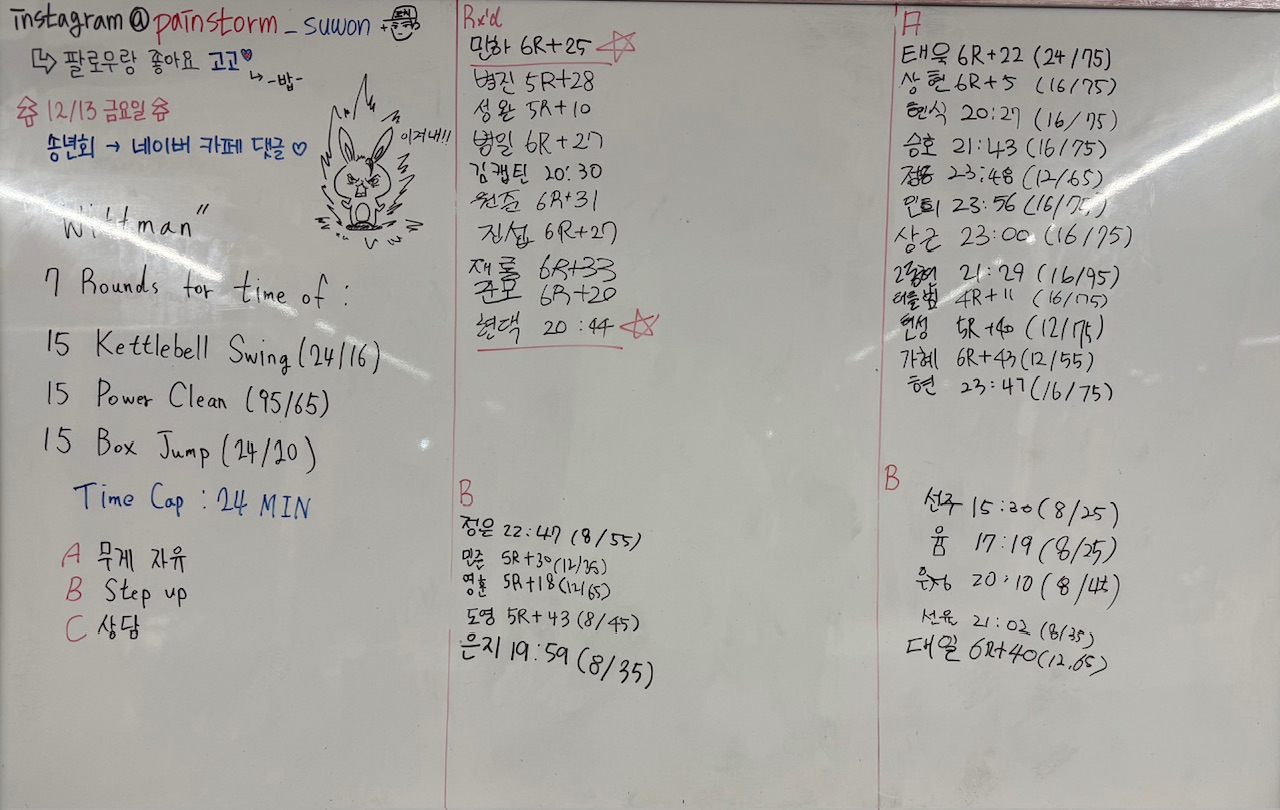 instagram@painstorm_suwon +
팔로우랑 좋아요 고고♥
↳ -밥-
12/13 금요일
송년회 → 네이버 카페 댓글 ♡
이겨내!!
Wittman"
7 Rounds for time of :
15 Kettlebell Swing (24/16)
15 Power Clean (95/65)
15 Box Jump (24/20)
Time Cap : 24 MIN
A 무게 자유
B Step up
C 상담
Rx'd
민하 6R+25
병진 5R+28
성완 5R+10
병일 6R+27
김캡틴 20:30
원준 6R+31
진섭 6R+27
재롱 6R+33
준모 6R+20
현택 20:44
B
정은 22:47 (8/55)
민준 5R+30 (12/35)
영훈 5R+18 (12/65)
도영 5R+43 (8/45)
은지 19:59 (8/35)
A
태욱 6R+22 (24/75)
상현 6R+5 (16/75)
현식 20:27 (16/75)
승호 21:43 (16/75)
23:48 (12/65)
민희 23:56 (16/75)
상근 23:00 (16/75)
21:29 (16/95)
4R+11 (16/75)
현성 5R+40 (12/75)
가혜 6R+43 (12/55)
현 23:47 (16/75)
B
선주 15:30 (8/25)
윰 17:19 (8/25)
은정 20:10 (8/45)
선윤 21:02 (8/35)
대일 6R+40 (12,65)